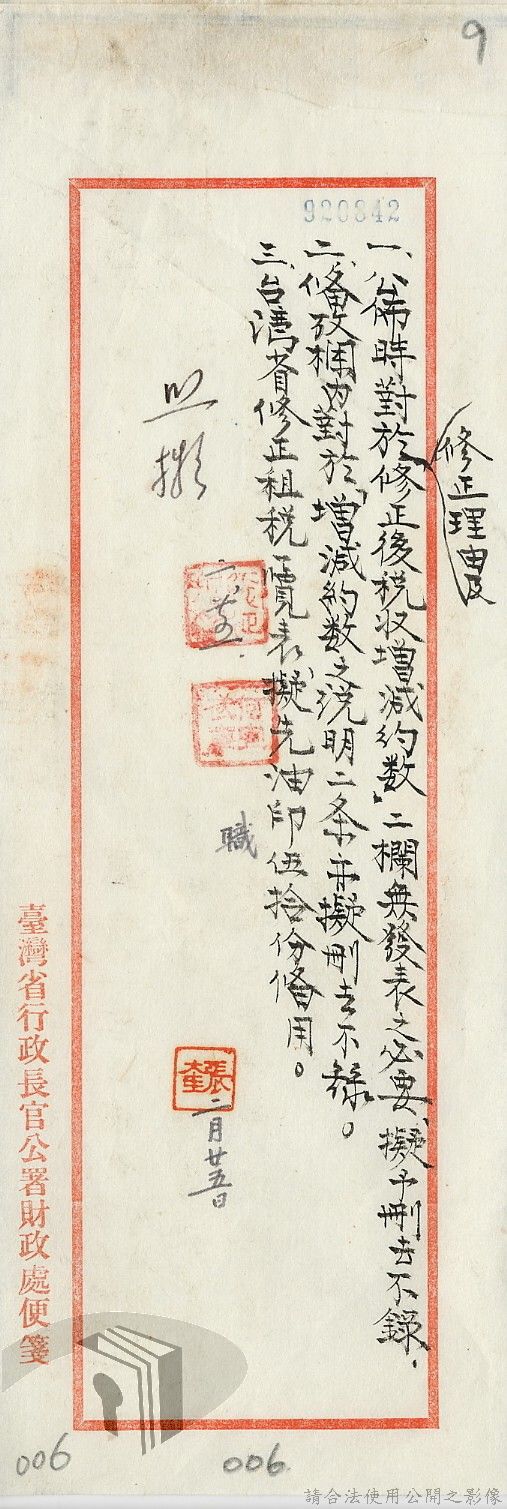 9
920842
一、公佈時對於修正後稅收增減約數，二欄無發表之必要，擬予刪去不錄，
修正理由及
二、備攷欄內對於「增減約數之說明二条亦擬刪去不錄。
三、台灣省修正租稅一覽表，擬先油印伍拾份備用。
照擬
二、廿五
職
張
二月廿五日
臺灣省行政長官公署財政處便箋
006
006
請合法使用公開之影像